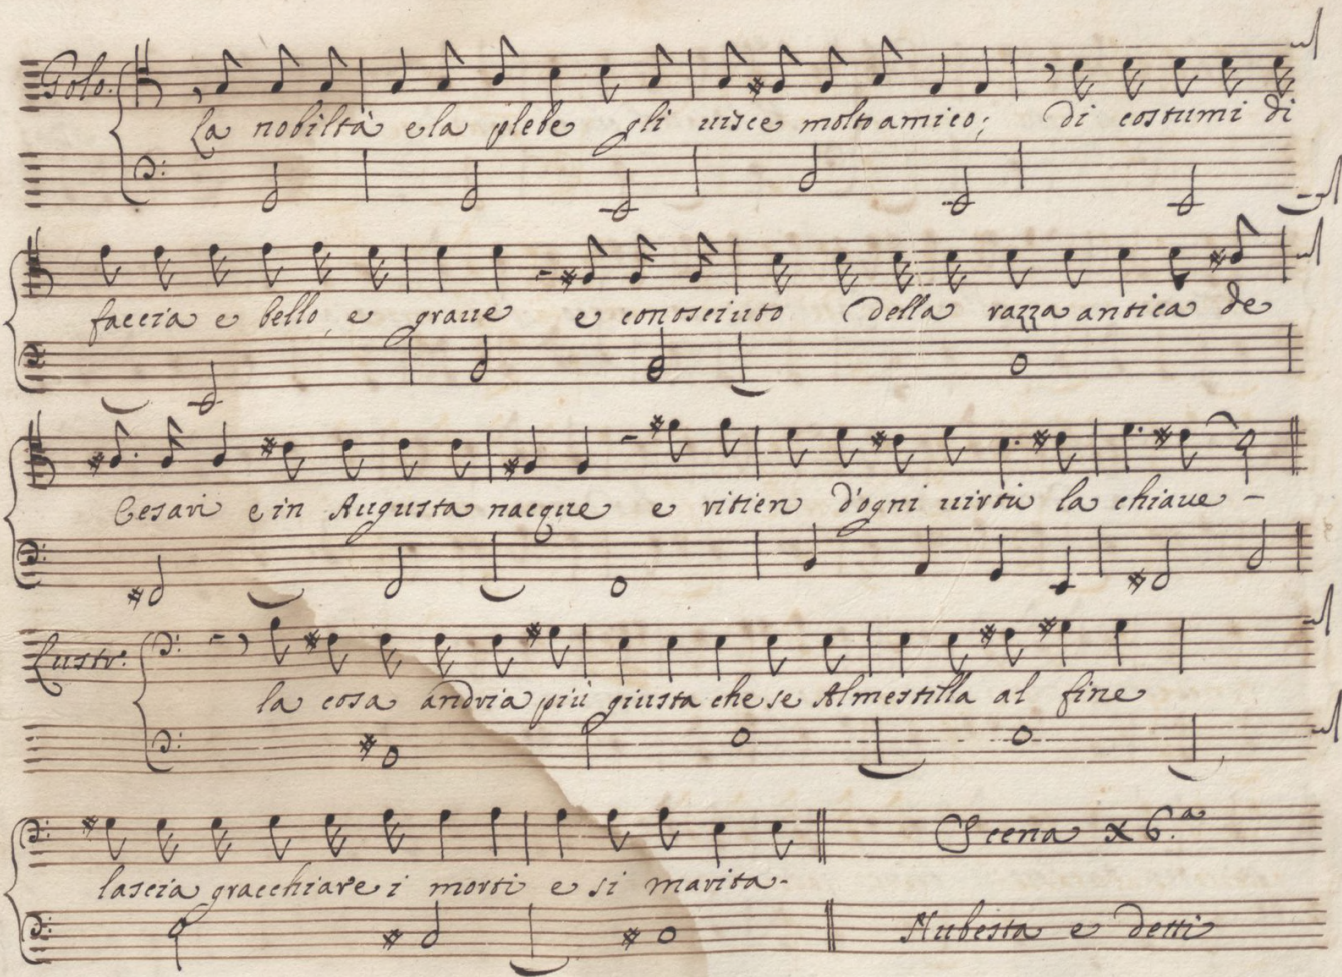 Golo. La nobiltà e la plebe gli uisce molto amico; di costumi di
faccia e bello e graue e conosciuto della razza antica de
Cesari e in Augusta nacque e ritien d'ogni uirtù la chiaue -
Lustr. la cosa andria più giusta che se Almestilla al fine
lascia gracchiare i morti e si marita.
Scena X6.a
Nubesta e detti